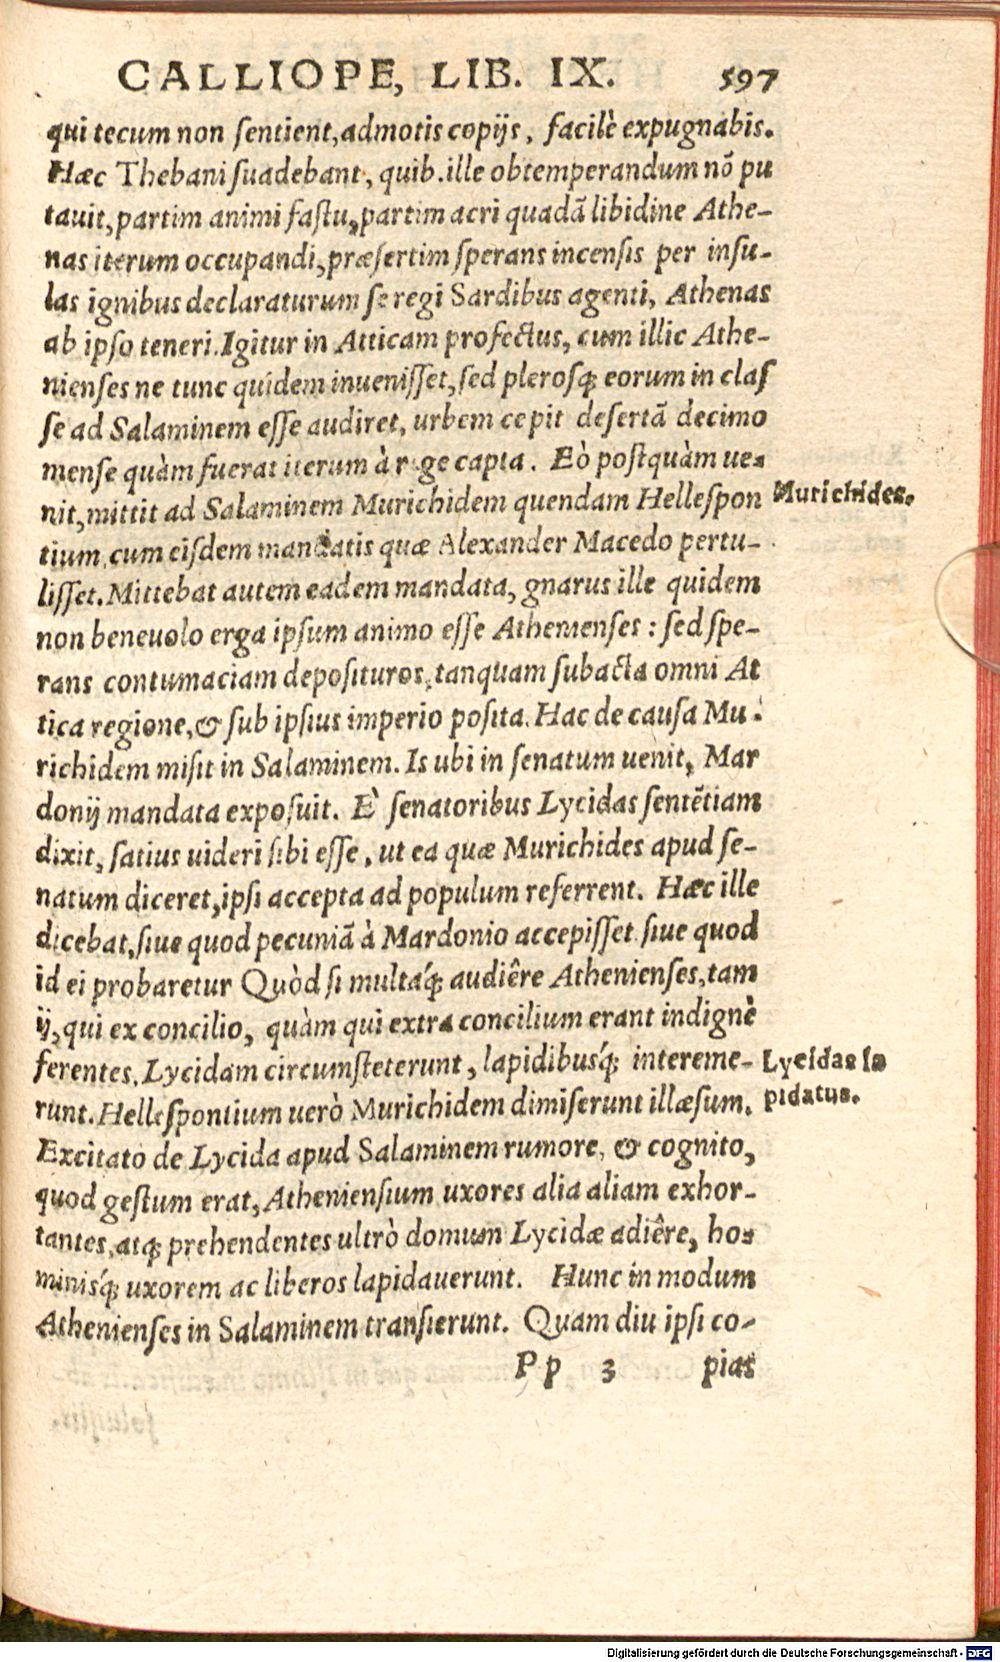 CALLIOPE, LIB. IX. 597
qui tecum non ſentient, admotis copijs, facilè expugnabis.
Hæc Thebani ſuadebant, quib. ille obtemperandum nō pu
tauit, partim animi faſtu, partim acri quadā libidine Athe-
nas iterum occupandi, præſertim ſperans incenſis per inſu-
las ignibus declaraturum ſe regi Sardibus agenti, Athenas
ab ipſo teneri. Igitur in Atticam profectus, cum illic Athe-
nienſes ne tunc quidem inueniſſet, ſed pleroſq; eorum in claſ
ſe ad Salaminem eſſe audiret, urbem cepit deſertā decimo
menſe quàm fuerat iterum à rege capta. Eò poſtquàm ue-
nit, mittit ad Salaminem Murichidem quendam Helleſpon
Murichides.
tium, cum eiſdem mandatis quæ Alexander Macedo pertu-
liſſet. Mittebat autem eadem mandata, gnarus ille quidem
non beneuolo erga ipſum animo eſſe Athenienſes: ſed ſpe-
rans contumaciam depoſituros, tanquam ſubacta omni At
tica regione, & ſub ipſius imperio poſita. Hac de cauſa Mu-
richidem miſit in Salaminem. Is ubi in ſenatum uenit, Mar
donij mandata expoſuit. È ſenatoribus Lycidas ſentētiam
dixit, ſatius uideri ſibi eſſe, ut ea quæ Murichides apud ſe-
natum diceret, ipſi accepta ad populum referrent. Hæc ille
dicebat, ſiue quod pecuniā à Mardonio accepiſſet, ſiue quod
id ei probaretur Quòd ſi multáq; audiêre Athenienſes, tam
ij, qui ex concilio, quàm qui extra concilium erant indignè
ferentes, Lycidam circumſteterunt, lapidibuſq́; intereme-
Lycidas la
runt. Helleſpontium uerò Murichidem dimiſerunt illæſum.
pidatus.
Excitato de Lycida apud Salaminem rumore, & cognito,
quod geſtum erat, Athenienſium uxores alia aliam exhor-
tantes, atq; prehendentes ultrò domum Lycidæ adiêre, ho-
miniſq́; uxorem ac liberos lapidauerunt. Hunc in modum
Athenienſes in Salaminem tranſierunt. Quam diu ipſi co-
Pp 3 pias
Digitalisierung gefördert durch die Deutsche Forschungsgemeinschaft - DFG